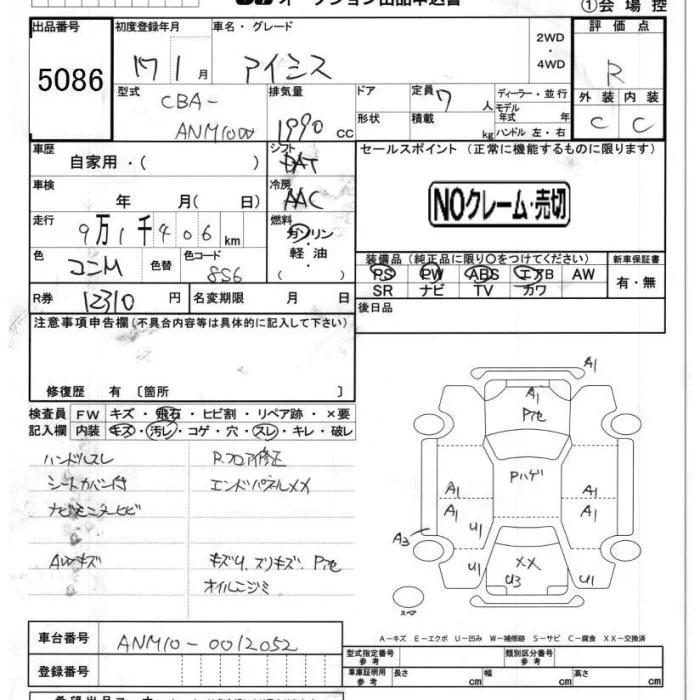 オークション出品申込書
①会場控
出品番号
5086
初度登録年月
17 1 月
車名・グレード
アイシス
2WD
・
4WD
評価点
R
型式
CBA-
ANM10W
排気量
1990 CC
ドア
形状
定員 7 人
積載 kg
ディーラー・並行
モデル年式 年
ハンドル 左・右
外装 内装
C C
車歴
自家用・( )
シフト
DAT
セールスポイント (正常に機能するものに限ります)
NOクレーム・売切
車検
年 月( 日)
冷房
AAC
走行
9万1千406km
燃料
ガソリン
軽油
( )
色
コンM
色替
色コード
8S6
装備品(純正品に限り○をつけてください)
PS PW ABS エアB AW
SR ナビ TV カワ
新車保証書
有・無
R券
12310 円
名変期限 月 日
後日品
注意事項申告欄(不具合内容等は具体的に記入して下さい)
修復歴 有 〔箇所 〕
検査員 FW キズ・飛石・ヒビ割・リペア跡・×要
記入欄 内装 キズ・汚レ・コゲ・穴・スレ・キレ・破レ
ハンドルスレ
シートカバー付
ナビモニターヒビ
AWキズ
Rフロア修正
エンドパネルXX
キズU.スリキズ.Pアセ
オイルニジミ
A1
A1
Pアセ
Pハゲ
A1
A1
A1
A1
U1
U1
A3
U1
XX
U3
U1
スペア
A-キズ E-エクボ U-凹み W-補修跡 S-サビ C-腐食 XX-交換済
車台番号
ANM10-0012052
登録番号
型式指定番号
参考
類別区分番号
参考
車庫証明用
参考
長さ 幅 高さ